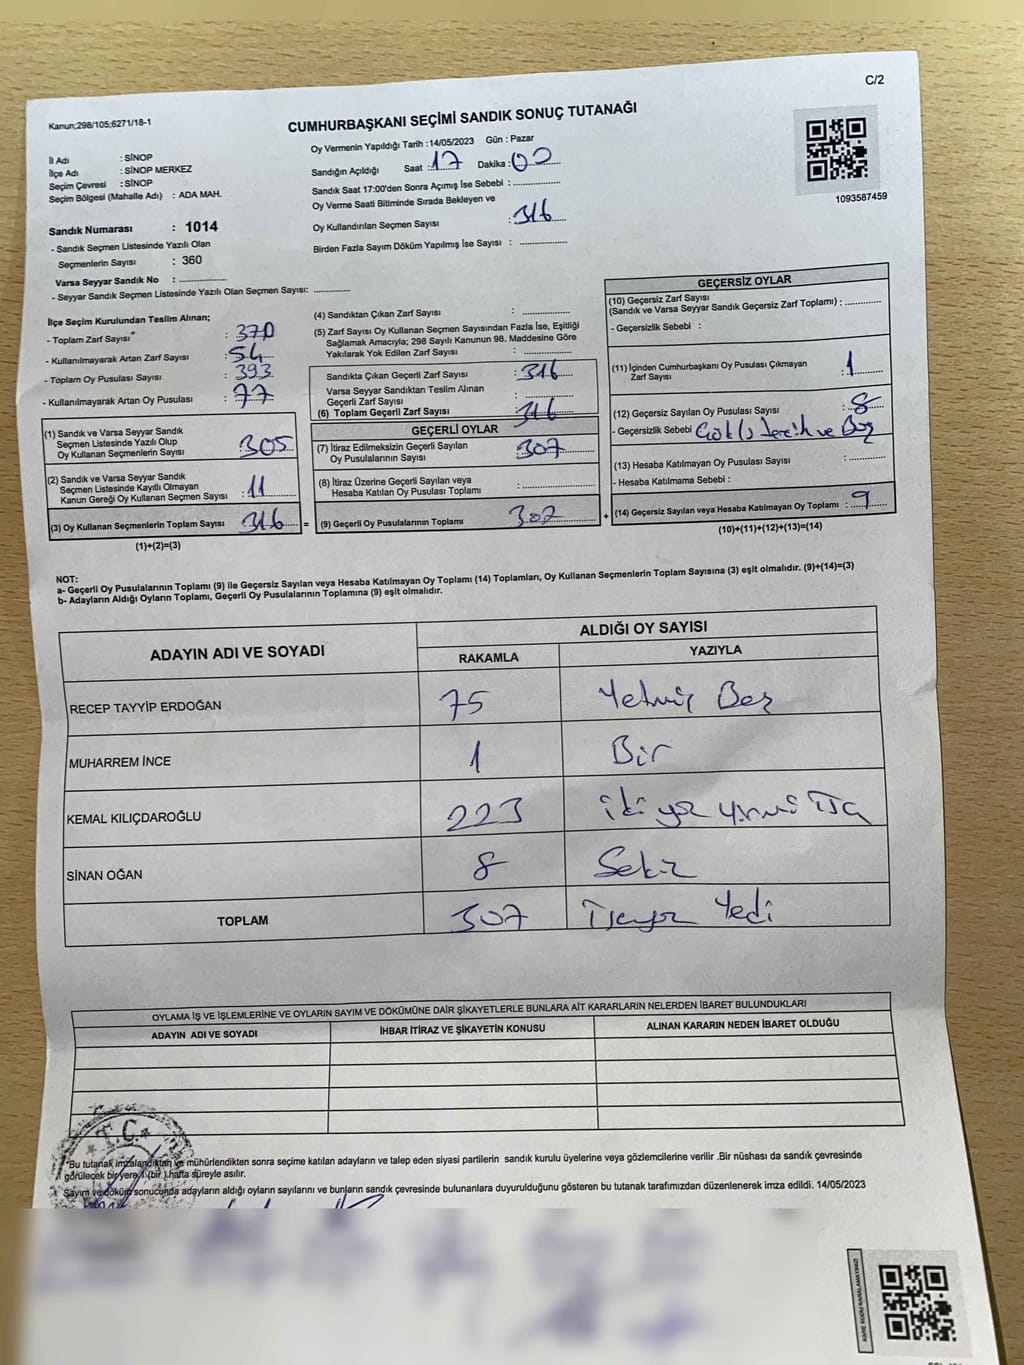 C/2
Kanun;298/105;6271/18-1
CUMHURBAŞKANI SEÇİMİ SANDIK SONUÇ TUTANAĞI
İl Adı : SİNOP
İlçe Adı : SİNOP MERKEZ
Seçim Çevresi : SİNOP
Seçim Bölgesi (Mahalle Adı) : ADA MAH.
Oy Vermenin Yapıldığı Tarih :14/05/2023 Gün : Pazar
Sandığın Açıldığı Saat :17 Dakika :00
Sandık Saat 17:00'den Sonra Açımış İse Sebebi :
Oy Verme Saati Bitiminde Sırada Bekleyen ve
Oy Kullandırılan Seçmen Sayısı : 316
Birden Fazla Sayım Döküm Yapılmış İse Sayısı :
1093587459
Sandık Numarası : 1014
- Sandık Seçmen Listesinde Yazılı Olan
Seçmenlerin Sayısı : 360
Varsa Seyyar Sandık No :
- Seyyar Sandık Seçmen Listesinde Yazılı Olan Seçmen Sayısı:
İlçe Seçim Kurulundan Teslim Alınan;
- Toplam Zarf Sayısı : 370
- Kullanılmayarak Artan Zarf Sayısı : 54
- Toplam Oy Pusulası Sayısı : 393
- Kullanılmayarak Artan Oy Pusulası : 77
(1) Sandık ve Varsa Seyyar Sandık
Seçmen Listesinde Yazılı Olup
Oy Kullanan Seçmenlerin Sayısı : 305
(2) Sandık ve Varsa Seyyar Sandık
Seçmen Listesinde Kayıtlı Olmayan
Kanun Gereği Oy Kullanan Seçmen Sayısı : 11
(3) Oy Kullanan Seçmenlerin Toplam Sayısı : 316 =
(1)+(2)=(3)
(4) Sandıktan Çıkan Zarf Sayısı :
(5) Zarf Sayısı Oy Kullanan Seçmen Sayısından Fazla İse, Eşitliği
Sağlamak Amacıyla; 298 Sayılı Kanunun 98. Maddesine Göre
Yakılarak Yok Edilen Zarf Sayısı :
Sandıkta Çıkan Geçerli Zarf Sayısı : 316
Varsa Seyyar Sandıktan Teslim Alınan
Geçerli Zarf Sayısı :
(6) Toplam Geçerli Zarf Sayısı : 316
GEÇERLİ OYLAR
(7) İtiraz Edilmeksizin Geçerli Sayılan
Oy Pusulalarının Sayısı : 307
(8) İtiraz Üzerine Geçerli Sayılan veya
Hesaba Katılan Oy Pusulası Toplamı :
(9) Geçerli Oy Pusulalarının Toplamı : 307 +
GEÇERSİZ OYLAR
(10) Geçersiz Zarf Sayısı
(Sandık ve Varsa Seyyar Sandık Geçersiz Zarf Toplamı) :
- Geçersizlik Sebebi :
(11) İçinden Cumhurbaşkanı Oy Pusulası Çıkmayan
Zarf Sayısı : 1
(12) Geçersiz Sayılan Oy Pusulası Sayısı : 8
- Geçersizlik Sebebi ve Boş
(13) Hesaba Katılmayan Oy Pusulası Sayısı :
- Hesaba Katılmama Sebebi :
(14) Geçersiz Sayılan veya Hesaba Katılmayan Oy Toplamı : 9
(10)+(11)+(12)+(13)=(14)
NOT:
a- Geçerli Oy Pusulalarının Toplamı (9) ile Geçersiz Sayılan veya Hesaba Katılmayan Oy Toplamı (14) Toplamları, Oy Kullanan Seçmenlerin Toplam Sayısına (3) eşit olmalıdır. (9)+(14)=(3)
b- Adayların Aldığı Oyların Toplamı, Geçerli Oy Pusulalarının Toplamına (9) eşit olmalıdır.
ADAYIN ADI VE SOYADI
ALDIĞI OY SAYISI
RAKAMLA YAZIYLA
RECEP TAYYİP ERDOĞAN 75 Yetmiş Beş
MUHARREM İNCE 1 Bir
KEMAL KILIÇDAROĞLU 223 iki yüz yirmi üç
SİNAN OĞAN 8 Sekiz
TOPLAM 307 Üçyüz Yedi
OYLAMA İŞ VE İŞLEMLERİNE VE OYLARIN SAYIM VE DÖKÜMÜNE DAİR ŞİKAYETLERLE BUNLARA AİT KARARLARIN NELERDEN İBARET BULUNDUKLARI
ADAYIN ADI VE SOYADI İHBAR İTİRAZ VE ŞİKAYETİN KONUSU ALINAN KARARIN NEDEN İBARET OLDUĞU
T.C.
*Bu tutanak imzalandıktan ve mühürlendikten sonra seçime katılan adayların ve talep eden siyasi partilerin sandık kurulu üyelerine veya gözlemcilerine verilir .Bir nüshası da sandık çevresinde
görülecek bir yere 1 (bir ) hafta süreyle asılır.
Sayım ve döküm sonucunda adayların aldığı oyların sayılarını ve bunların sandık çevresinde bulunanlara duyurulduğunu gösteren bu tutanak tarafımızdan düzenlenerek imza edildi. 14/05/2023
KARE KODU KARALAMAYINIZ!